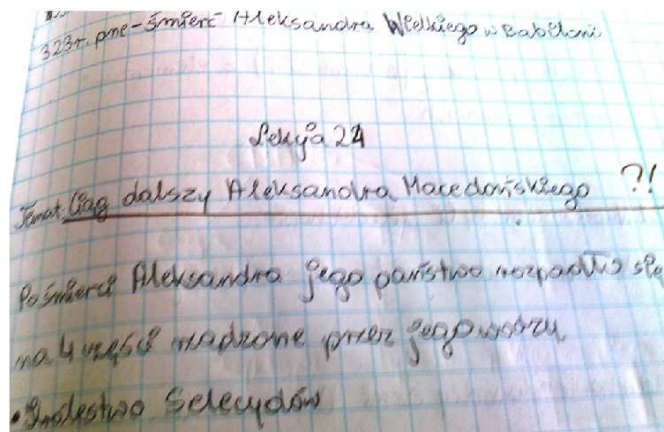 323r. pne - śmierć Aleksandra Wielkiego w Babiloni
Lekcja 24
Temat: Ciąg dalszy Aleksandra Macedońskiego ?!
Po śmierci Aleksandra jego państwo rozpadło się
na 4 części rządzone przez jego
• Selecydów